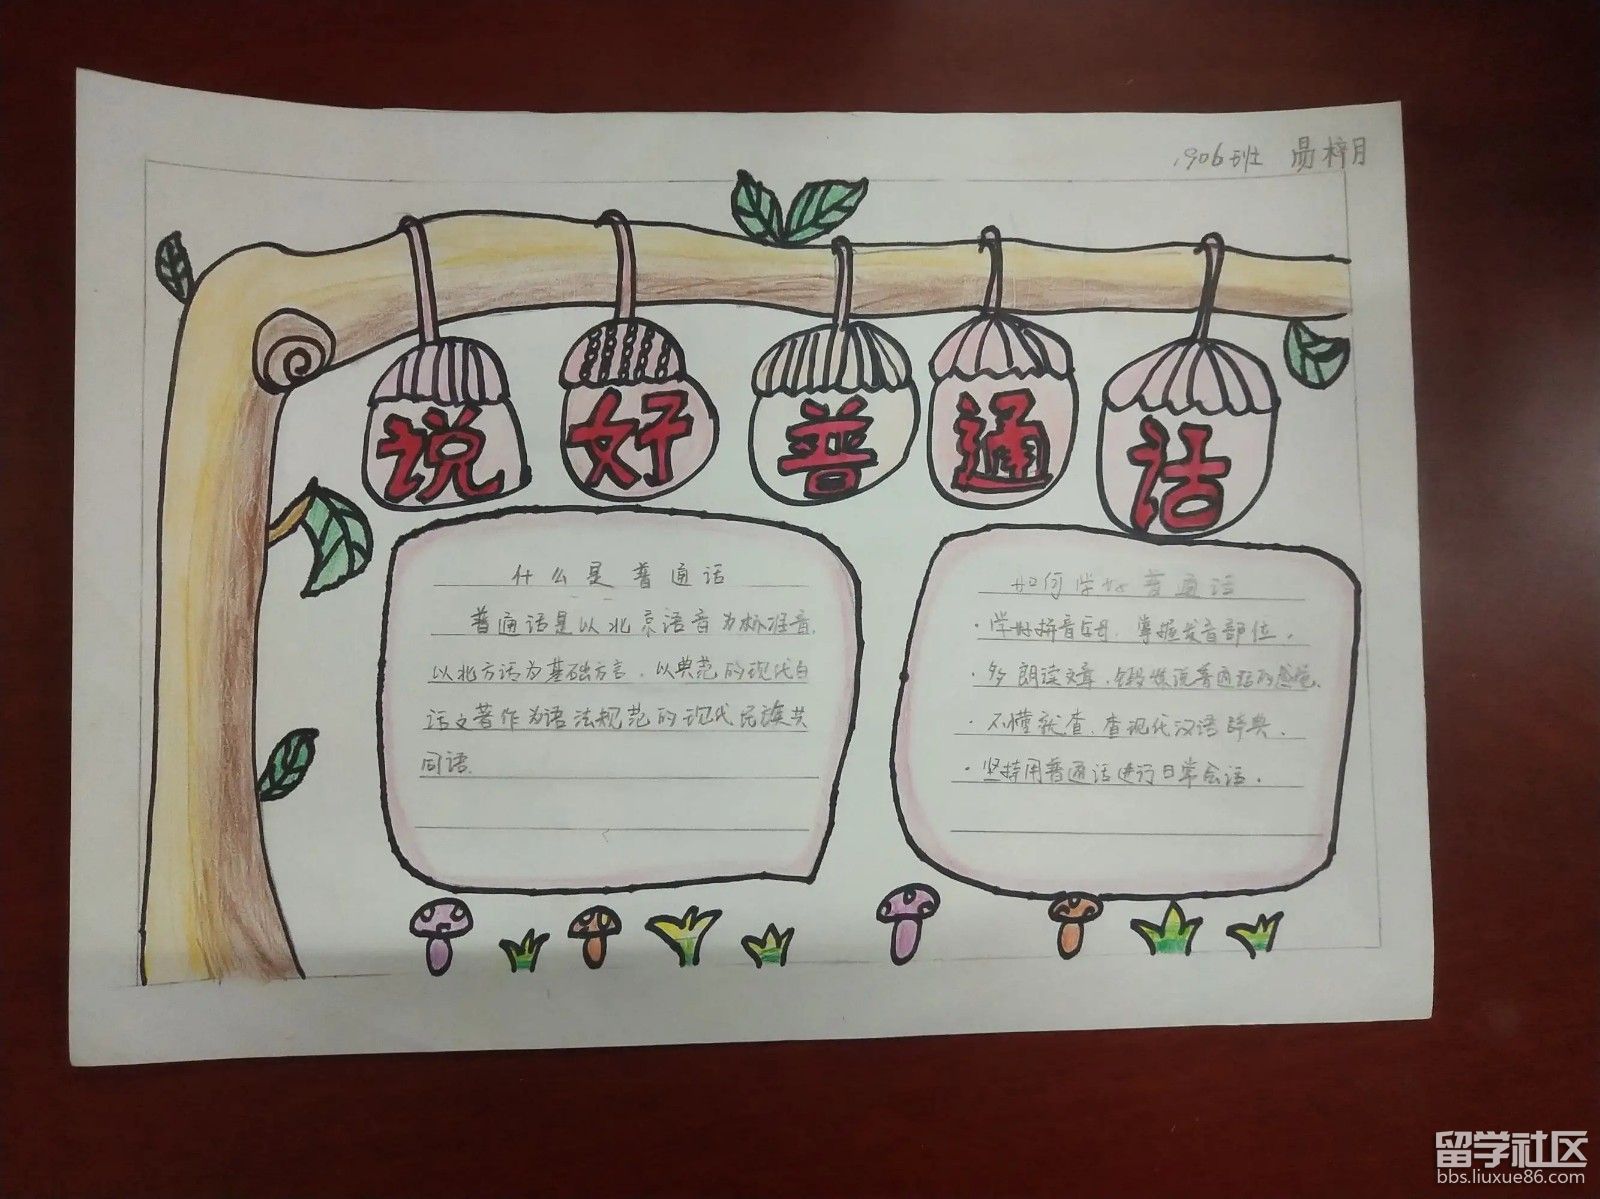 1906班 易梓月
说好普通话
什么是普通话
普通话是以北京语音为标准音,
以北方话为基础方言,以典范的现代白
话文著作为语法规范的现代民族共
同语.
如何学好普通话
·学好拼音字母,掌握发音部位.
·多朗读文章,锻炼说普通话的感觉.
·不懂就查,查现代汉语辞典.
·坚持用普通话进行日常会话.
留学社区
bbs.liuxue86.com